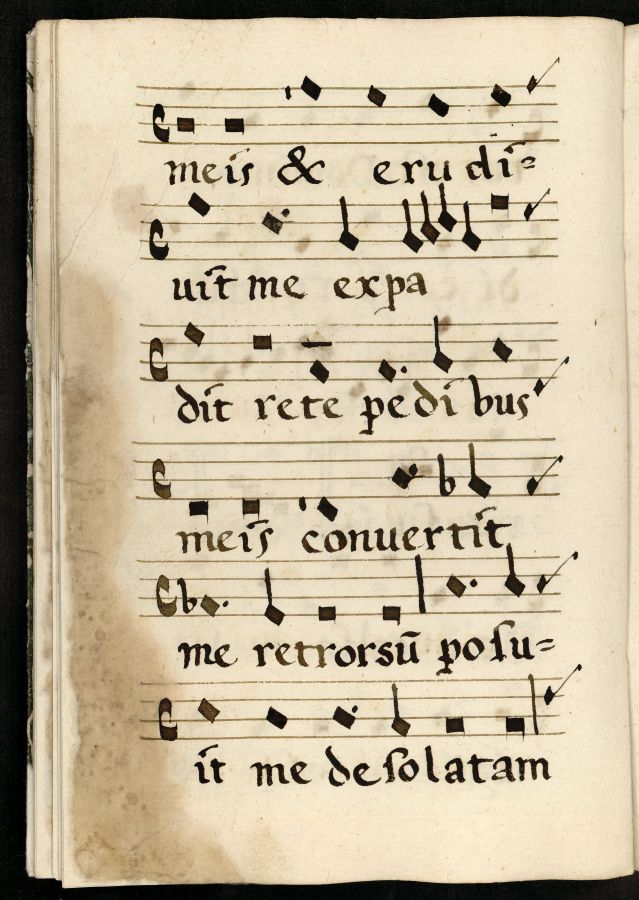 meis & erudi=
uit me expa
dit rete pedibus
meis conuertit
me retrorsũ posu=
it me desolatam